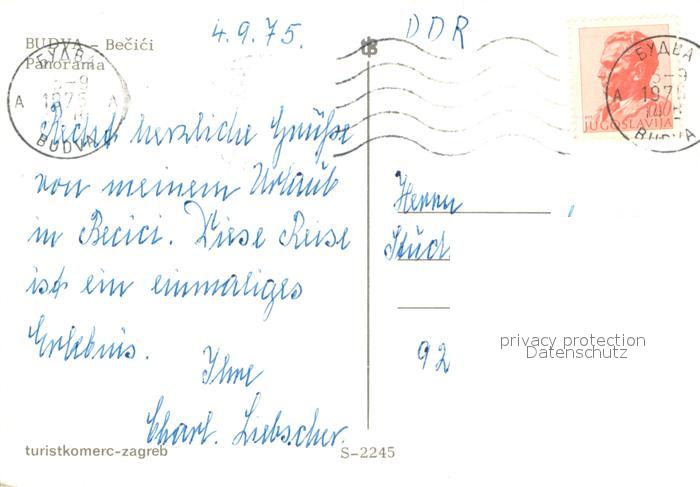 4.9.75.
DDR
BUDVA – Bečići
Panorama
БУДВА
A A
1975
BUDVA
БУДВА
A
1975
BUDVA
JUGOSLAVIJA
Recht herzliche Grüße
von meinem Urlaub
in Becici. Diese Reise
ist ein einmaliges
Erlebnis.
Ihre
Charl. Liebscher.
Herrn
Stud
92
privacy protection
Datenschutz
turistkomerc-zagreb
S-2245